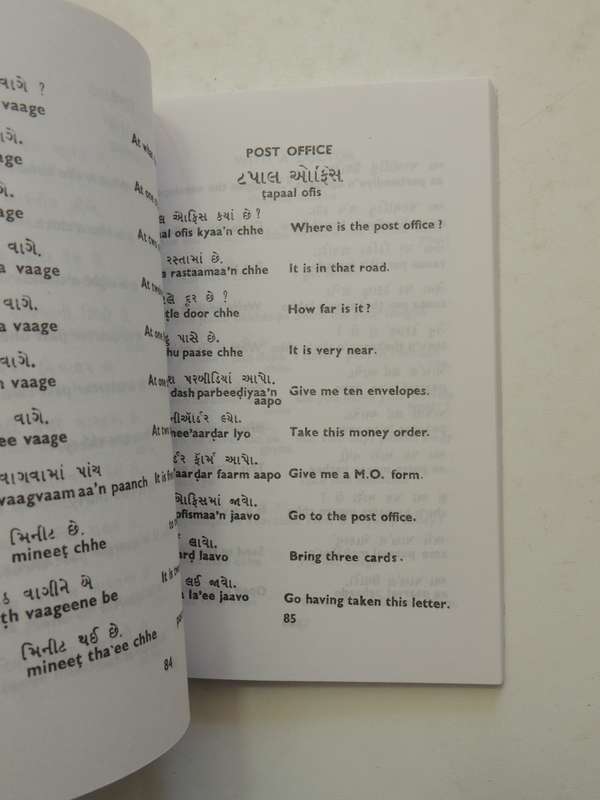 વાગે ?
vaage
વાગે.
vaage
વાગે.
a vaage
વાગે.
a vaage
વાગે.
vaage
વાગે.
vaage
વાગે.
ee vaage
વાગવામાં પાંચ
vaagvaamaa'n paanch
મિનીટ છે.
mineeṭ chhe
વાગીને બે
ṭh vaageene be
મિનીટ થઈ છે.
mineeṭ tha'ee chhe
84
At what
At one
At two
At one
At one
At two
POST OFFICE
ટપાલ ઓફિસ
ṭapaal ofis
ઓફિસ કયાં છે?
al ofis kyaa'n chhe
Where is the post office ?
રસ્તામાં છે.
a rastaamaa'n chhe
It is in that road.
દૂર છે ?
ṭle door chhe
How far is it ?
પાસે છે.
hu paase chhe
It is very near.
પરબીડિયાં આપો.
dash parbeeḍiyaa'n
aapo
Give me ten envelopes.
નીઑર્ડર લ્યો.
nee'aarḍar lyo
Take this money order.
ર્ડર ફૉર્મ આપો.
'aarḍar faarm aapo
Give me a M.O. form.
ઓફિસમાં જાવો.
ofismaa'n jaavo
Go to the post office.
લાવો.
arḍ laavo
Bring three cards.
લઈ જાવો.
la'ee jaavo
Go having taken this letter.
85